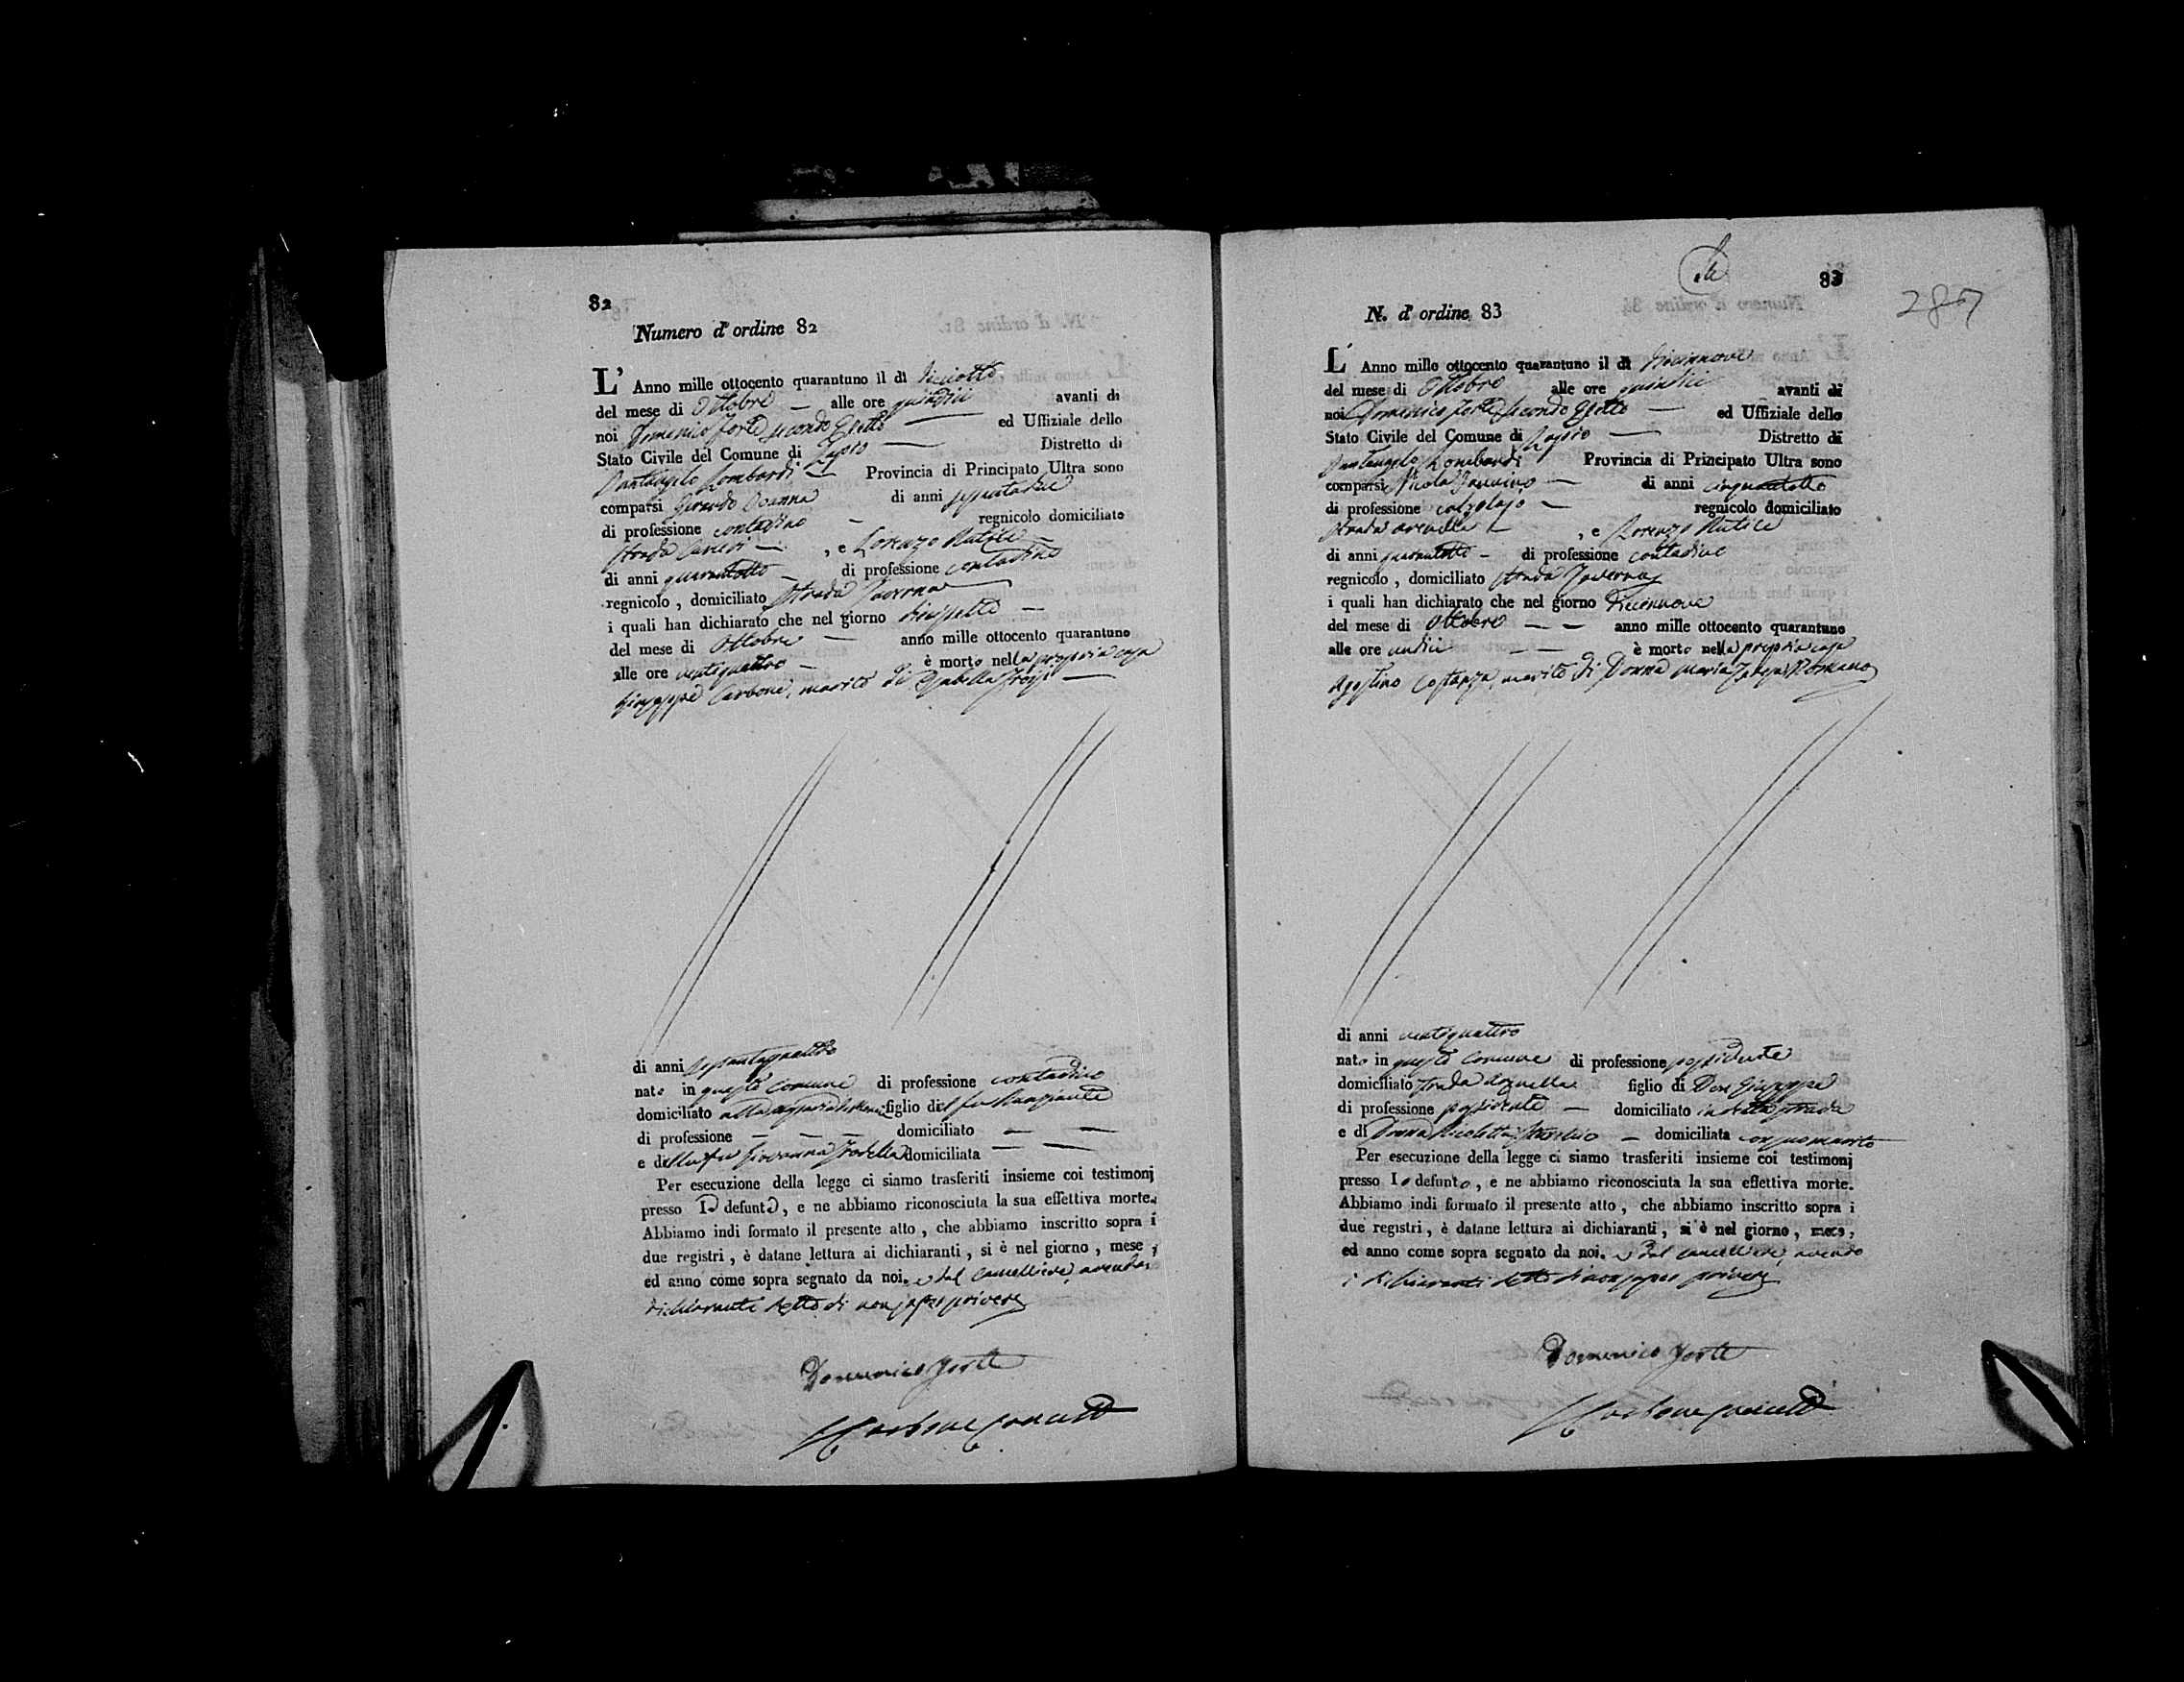 82
Numero d'ordine 82
L' Anno mille ottocento quarantuno il dì diciotto
del mese di Ottobre alle ore quindici avanti di
noi Domenico Forte secondo Eletto ed Uffiziale dello
Stato Civile del Comune di Distretto di
Santangelo Lombardi Provincia di Principato Ultra sono
comparsi Gerardo di anni
di professione contadino regnicolo domiciliato
strada , e Lorenzo
di anni quarantotto di professione contadino
regnicolo , domiciliato strada Taverna
i quali han dichiarato che nel giorno diciasette
del mese di Ottobre anno mille ottocento quarantuno
alle ore ventiquattro è morto nella propria casa
Giuseppe Carbone, marito di Isabella
di anni settantaquattro
nato in questo comune di professione contadino
domiciliato figlio del fu
di professione domiciliato
e della fu Giovanna domiciliata
Per esecuzione della legge ci siamo trasferiti insieme coi testimonj
presso lo defunto, e ne abbiamo riconosciuta la sua effettiva morte.
Abbiamo indi formato il presente atto , che abbiamo inscritto sopra i
due registri , è datane lettura ai dichiaranti , si è nel giorno , mese ,
ed anno come sopra segnato da noi. e dal cancelliere, avendo i
dichiaranti detto di non saper scrivere
Domenico Forte
Carbone
83
287
N. d'ordine 83
L' Anno mille ottocento quarantuno il dì diciannove
del mese di Ottobre alle ore quindici avanti di
noi Domenico Forte secondo Eletto ed Uffiziale dello
Stato Civile del Comune di Distretto di
Santangelo Lombardi Provincia di Principato Ultra sono
comparsi Nicola di anni cinquantotto
di professione calzolajo regnicolo domiciliato
strada , e Lorenzo
di anni quarantotto di professione contadino
regnicolo , domiciliato strada Taverna
i quali han dichiarato che nel giorno diciannove
del mese di Ottobre anno mille ottocento quarantuno
alle ore undici è morto nella propria casa
Agostino Costanza, marito di Donna Maria Romano
di anni ventiquattro
nato in questo comune di professione possidente
domiciliato strada figlio di Don Giuseppe
di professione possidente domiciliato in detta strada
e di Donna Nicoletta domiciliata con suo marito
Per esecuzione della legge ci siamo trasferiti insieme coi testimonj
presso lo defunto, e ne abbiamo riconosciuta la sua effettiva morte.
Abbiamo indi formato il presente atto , che abbiamo inscritto sopra i
due registri , è datane lettura ai dichiaranti , si è nel giorno , mese ,
ed anno come sopra segnato da noi. e dal cancelliere, avendo
i dichiaranti detto di non saper scrivere
Domenico Forte
Carbone